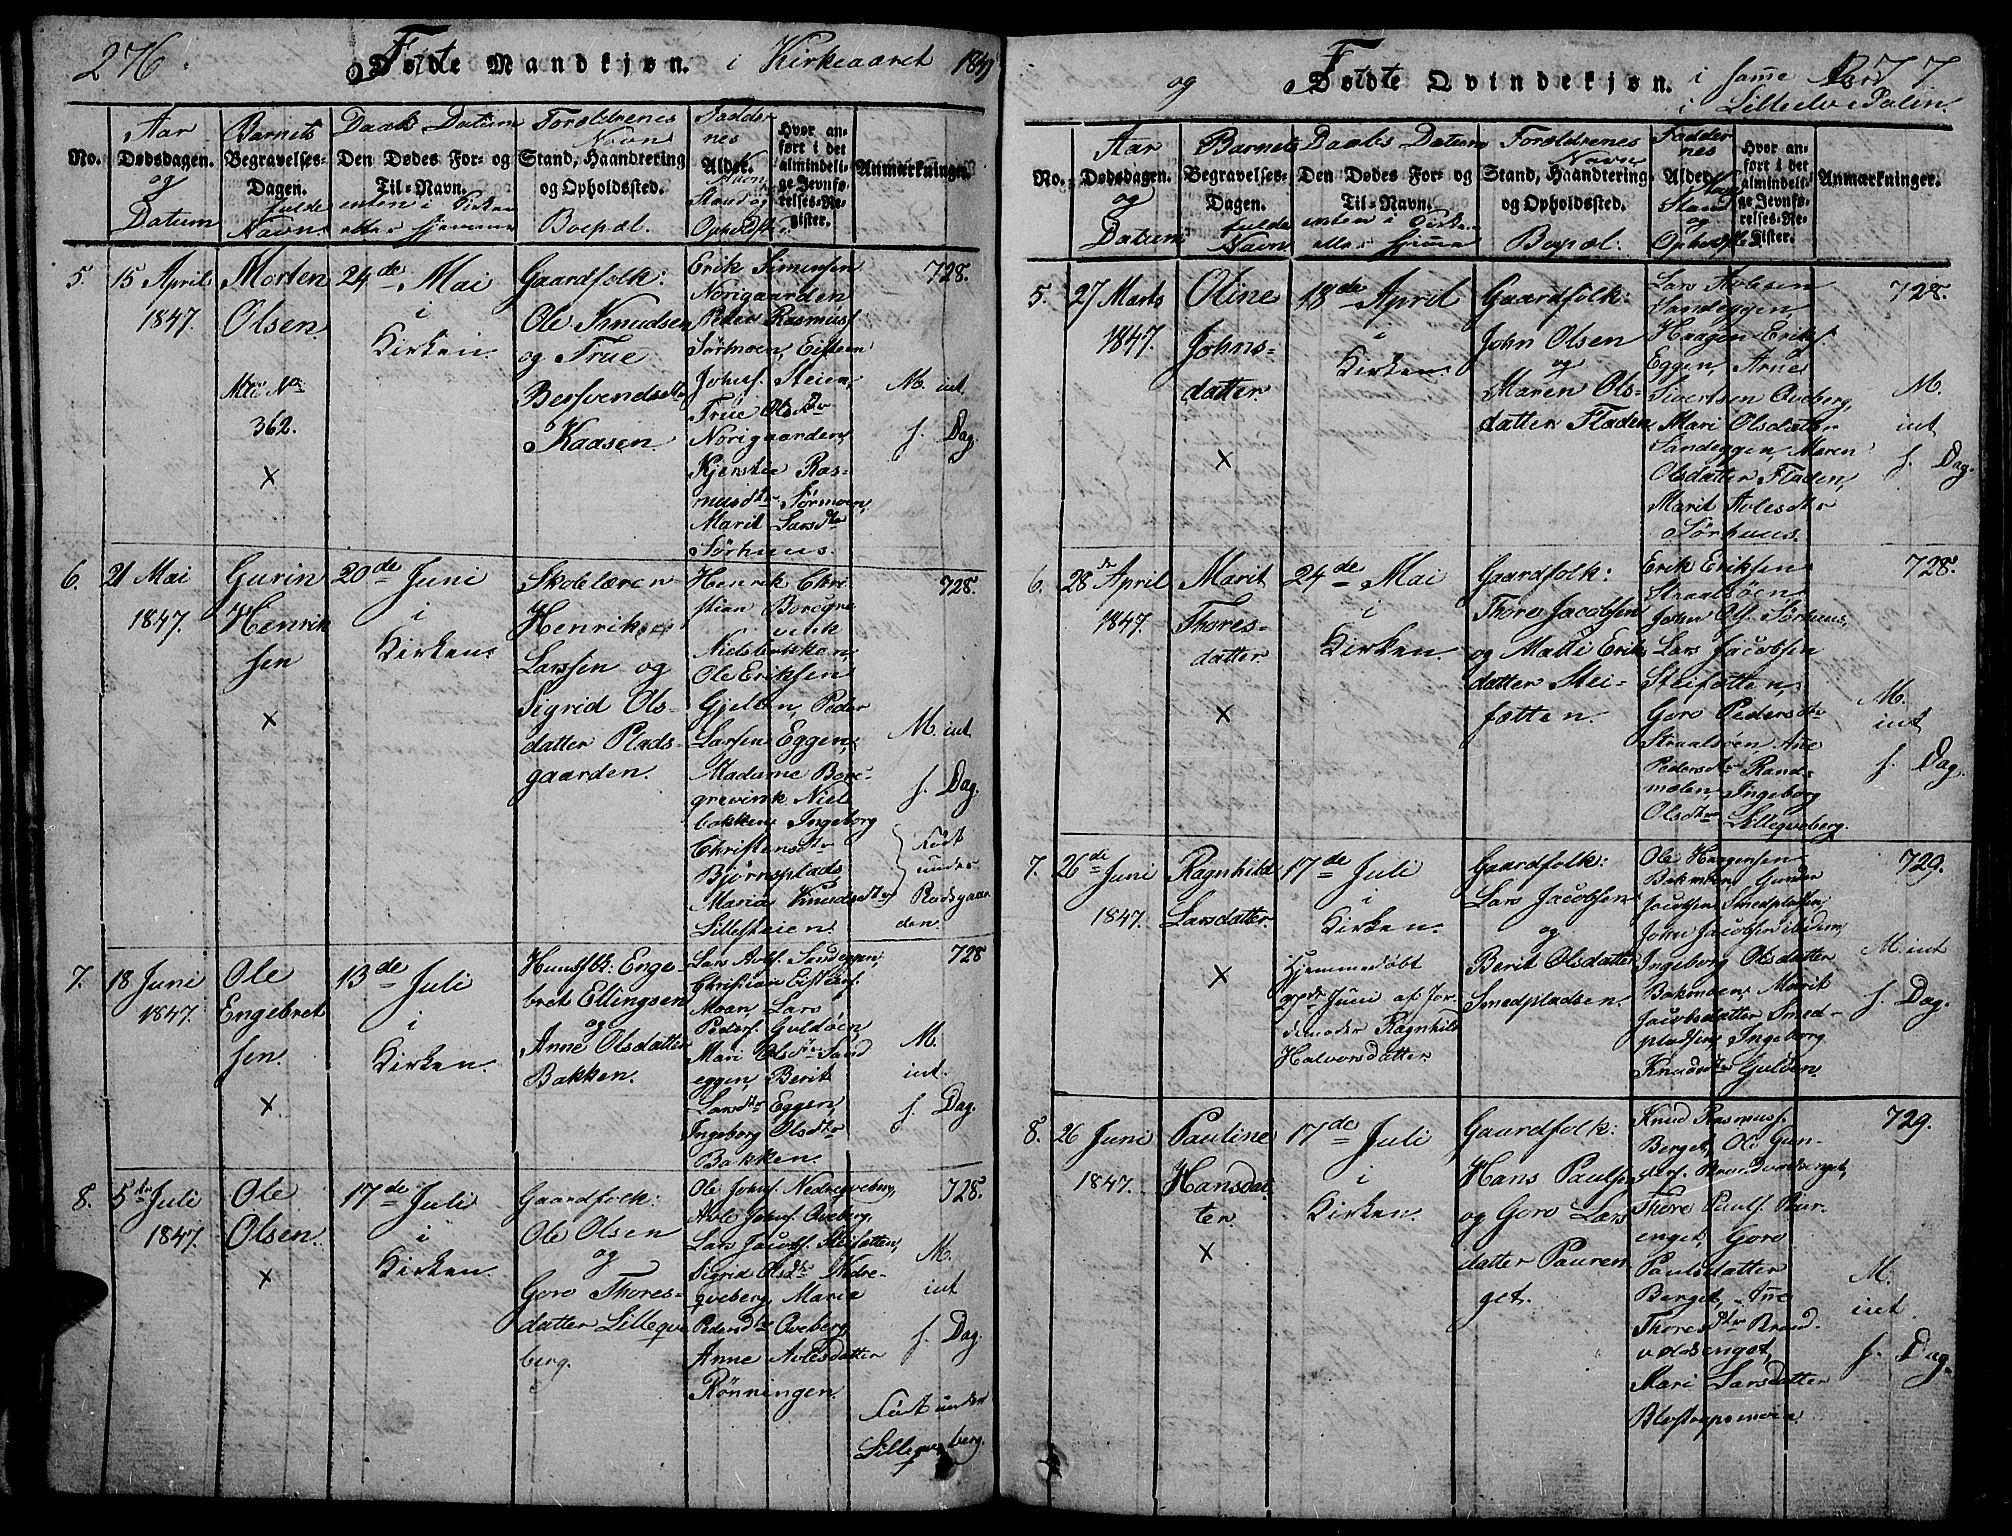 276.
Födte Mandkjøn. i Kirkeaaret
No.
Aar
Dødsdagen.
og
Datum
Barnets
Begravelses-
Dagen.
fulde
Navn
Daabs Datum
Den Dødes For- og
Til-Navn.
enten i Kirken
eller hjemme
Forældrenes
Navn
Stand, Haandtering
og Opholdssted.
Bopæl.
Faddernes
Alder.
Navn
Stand og
Opholdst.
Hvor an-
ført i det
almindeli-
ge Jevnfø-
relses-Re-
gister.
Anmærkninger.
5.
15 April
1847.
Morten
Olsen.
No
362.
×
24de Mai
i
Kirken.
Gaardfolk:
Ole Knudsen
og True
Bersvendsdtr
Kaasen.
Erik Simensen
Norigaarden
Peder Rasmus
Sørmoen, Eisteen
Johns. Steien,
True Olsdtr
Norigaarden,
Kjersten Ras-
musdtr Sørmoen,
Marit Larsdtr
Sørhuus.
728.
M. int
f. Dag.
6.
21 Mai
1847.
Gurin
Henrik
sen
×
20de Juni
i
Kirken.
Skolelæren
Henrik
Larssen og
Sigrid Ols-
datter Plads-
gaarden.
Henrik Chri
stian Borchgre
vink
Nielsbakken,
Ole Eriksen
Gjelten, Peder
Larsen Eggen,
Madame Borc-
grevink Niels
bakken Ingeborg
Christensdtr
Bjørnsplads
Maria Knudsdtr
Lillesteien.
728.
M. int
f. Dag.
Født
under
Pladsgaar
den.
7.
18 Juni
1847.
Ole
Engebret
sen.
×
13de Juli
i
Kirken.
Huusfk: Enge-
bret Ellingsen
og
Anne Olsdatter
Bakken.
Lars Avls. Sandeggen,
Christian Eistens.
Moen, Lars
Peders. Guldøen
Mari Olsdtr Sand
eggen, Berit
Larsdtr Eggen,
Ingeborg Olsdtr
Bakken.
728
M.
int.
f. Dag.
8.
5te Juli
1847.
Ole
Olsen.
×
17de Juli
i
Kirken.
Gaardfolk:
Ole Olsen
og
Goro Thores-
datter Lilleqve
berg.
Ole Johns. Nedreqveberg,
Avle Johns. Qveberg,
Lars Jacobs. Steifætten,
Sigrid Olsdtr Nedre-
qveberg, Maria
Pedersdtr Qveberg,
Anne Avlesdatter
Rønningen.
728.
M.
int
f. Dag.
Født under
Lilleqveberg.
og
Födte Qvindekjøn. i samme Aar
i Lilleelvedalen.
No.
Aar
Dødsdagen.
og
Datum
Barnets
Begravelses-
Dagen.
fulde
Navn
Daabs Datum
Den Dødes For- og
Til-Navn.
enten i Kirken
eller hjemme
Forældrenes
Navn
Stand, Haandtering
og Opholdssted.
Bopæl.
Fadder
nes
Alder.
Navn
Stand
og
Opholdsted
Hvor an-
ført i det
almindeli-
ge Jevnfø-
relses-Re-
gister.
Anmærkninger.
5.
27 Marts
1847.
Oline
Johns-
datter
×
18de April
i
Kirken.
Gaardfolk:
John Olsen
og
Maren Ols-
datter Fladen
Lars Avlesen
Sandeggen,
Haagen Eriks.
Eggen, Arne
Sivertsen Qveberg,
Mari Olsdatter
Sandeggen, Maren
Olsdatter Fladen,
Marit Avlesdtr
Sørhuus.
728.
M.
int
f. Dag.
6.
28 April
1847.
Marit
Thores-
datter.
×
24de Mai
i
Kirken.
Gaardfolk:
Thore Jacobsen
og Malli Eriks
datter Stei-
fætten.
Erik Eriksen
Straalsøen
John Ols. Sørhuus,
Lars Jacobsen
Steifætten
Goro Pedersdtr
Straalsøen Ane
Pedersdtr Rand-
molen Ingeborg
Olsdtr Lilleqveberg.
728.
M.
int
f. Dag.
7.
26de Juni
1847.
Ragnhild
Larsdatter.
×
17de Juli
i
Kirken.
Hjemmedøbt
Juni af Jor-
demoder Ragnhild
Halvorsdatter.
Gaardfolk:
Lars Jacobsen
og
Berit Olsdatter
Smedpladsen.
Ole Haagensen
Bakmoen, Gunder
Jacobsen Smedpladsen,
John Jacobsen ibidem,
Ingeborg Olsdatter
Bakmoen, Marit
Jacobsdatter Smed-
pladsen, Ingeborg
Knudsdtr Gulden.
729.
M. int
f. Dag.
8.
26 Juni
1847.
Pauline
Hansdat
ter.
×
17de Juli
i
Kirken.
Gaardfolk:
Hans Paulsen
og Goro Lars
datter Pauren
get.
Knud Rasmuss.
Berget, Ole Gun-
ders. Brandvoldenget,
Thore Pauls. Paur-
enget, Goro
Paulsdatter
Berget, Ane
Thoresdtr Brand-
voldsenget,
Mari Larsdatter
729.
M.
int.
f. Dag.